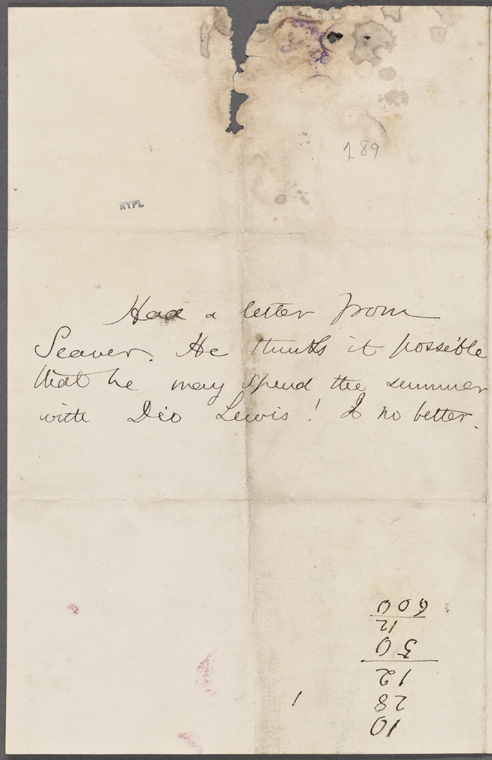 189
NYPL
Had a letter from
Seaver. He thinks it possible
that he may spend the summer
with Dio Lewis! Is no better.
10
28
12
50
12
600